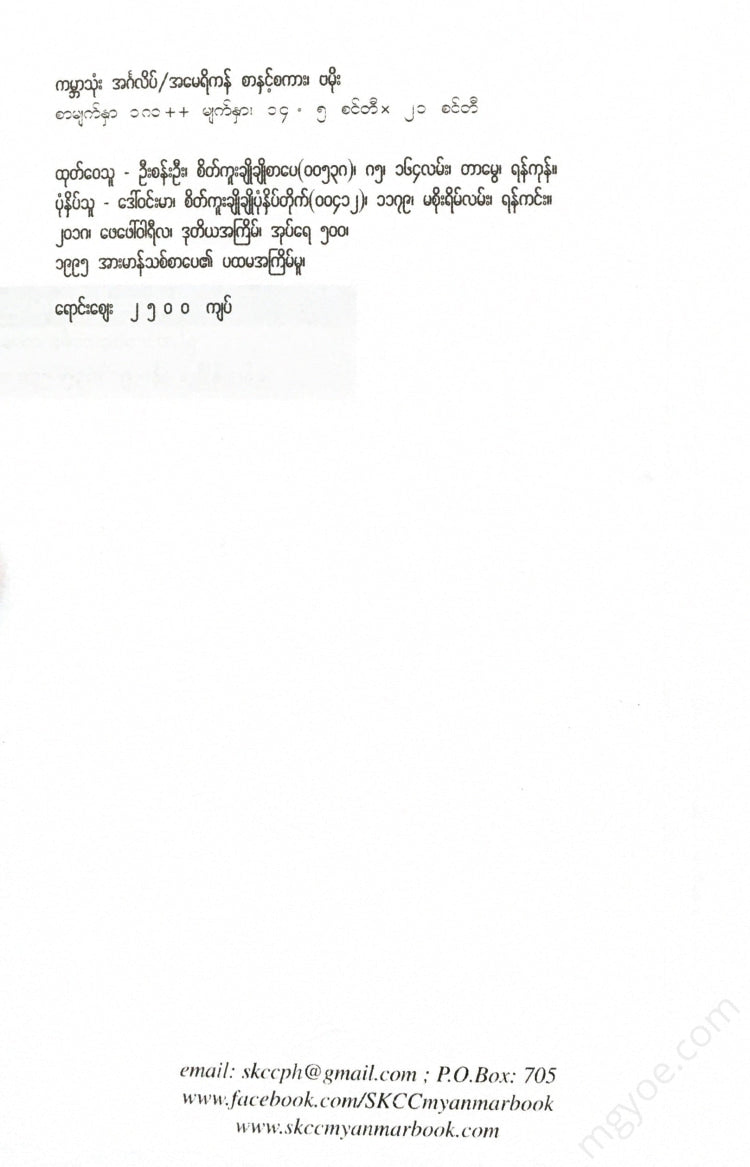 ကမ္ဘာသုံး အင်္ဂလိပ်/အမေရိကန် စာနှင့်စကား၊ ဗမိုး
စာမျက်နှာ ၁၈၁++ မျက်နှာ၊ ၁၄ . ၅ စင်တီ× ၂၁ စင်တီ
ထုတ်ဝေသူ - ဦးစန်းဦး၊ စိတ်ကူးချိုချိုစာပေ(၀၀၅၃၈)၊ ၈၅၊ ၁၆၄လမ်း၊ တာမွေ၊ ရန်ကုန်။
ပုံနှိပ်သူ - ဒေါ်ဝင်းမာ၊ စိတ်ကူးချိုချိုပုံနှိပ်တိုက်(၀၀၄၁၂)၊ ၁၁၇၉၊ မစိုးရိမ်လမ်း၊ ရန်ကင်း။
၂၀၁၈၊ ဖေဖေါ်ဝါရီလ၊ ဒုတိယအကြိမ်၊ အုပ်ရေ ၅၀၀၊
၁၉၉၅ အားမာန်သစ်စာပေ၏ ပထမအကြိမ်မူ၊
ရောင်းဈေး ၂၅၀၀ ကျပ်
email: skccph@gmail.com ; P.O.Box: 705
www.facebook.com/SKCCmyanmarbook
www.skccmyanmarbook.com
mgyoe.com